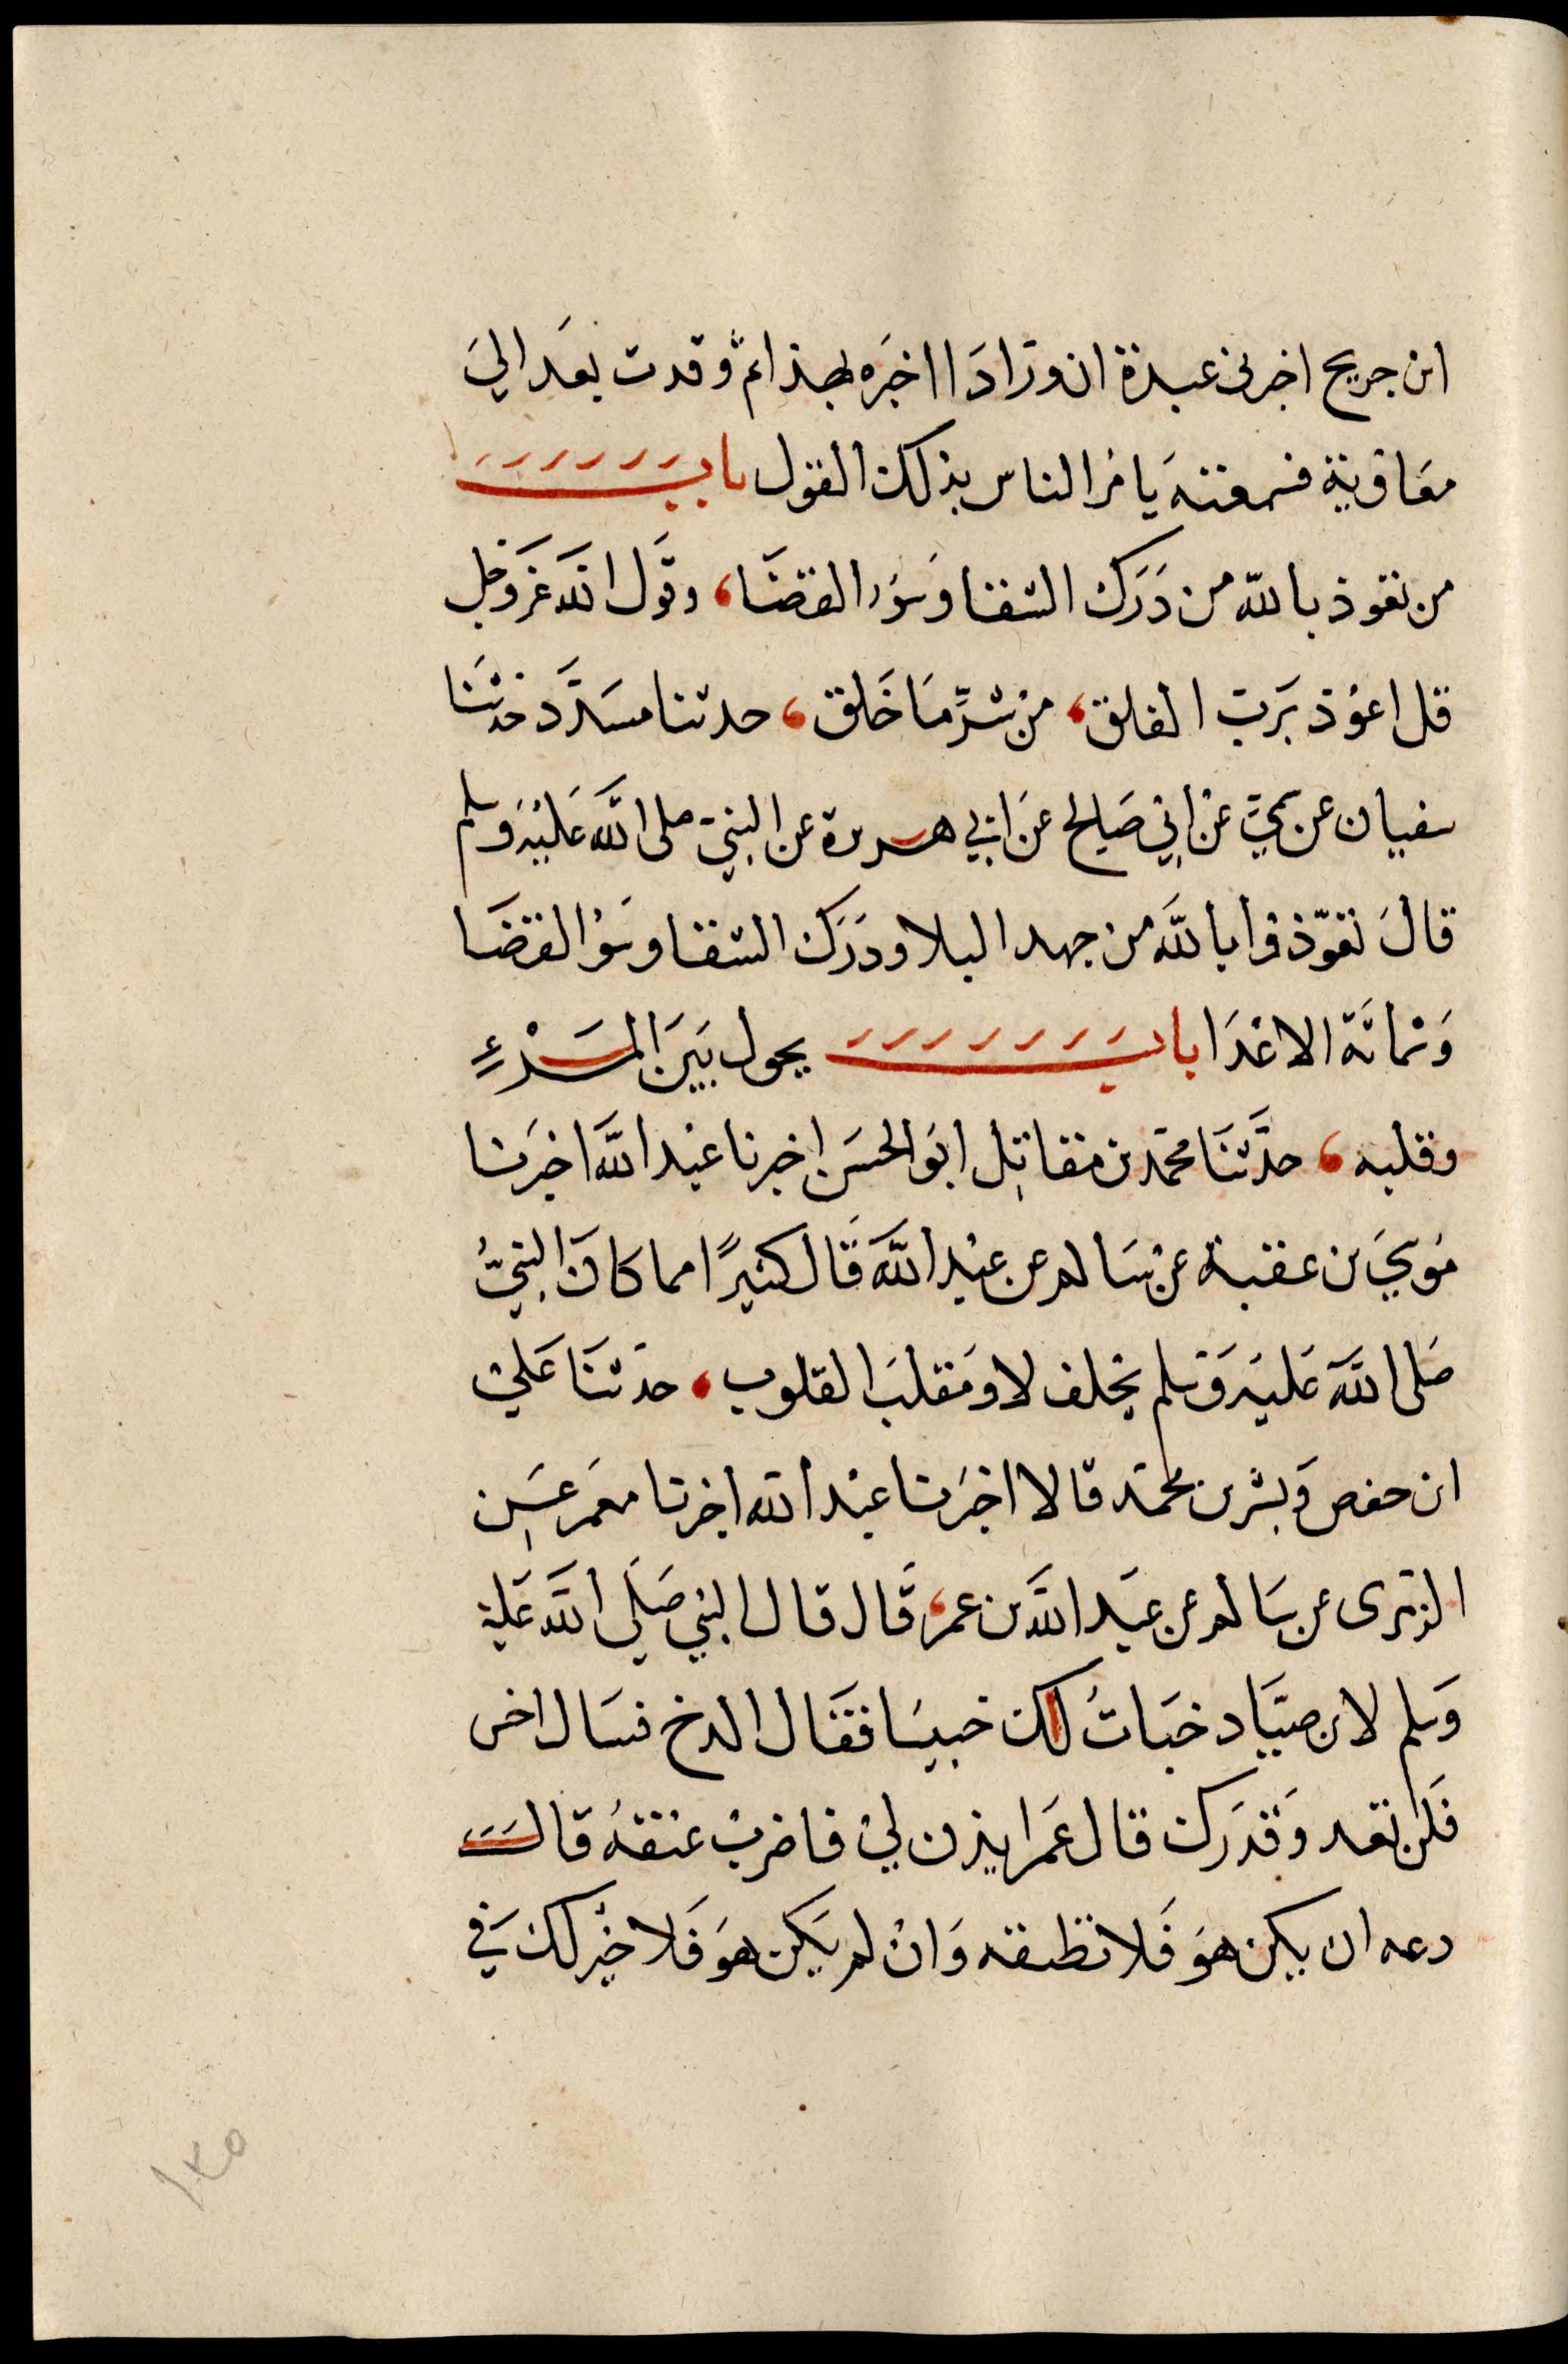 ابن جريج اخبرني عبدة ان ورادا اخبره بهذا ثم وفدت بعد الي
معاوية فسمعته يامر الناس بذلك القول باب
من تعوذ بالله من درك الشقا وسوء القضا، وقول الله عز وجل
قل اعوذ برب الفلق، من شر ما خلق، حدثنا مسدد حدثنا
سفيان عن سمي عن ابي صالح عن ابي هريرة عن النبي صلى الله عليه وسلم
قال تعوذوا بالله من جهد البلا ودرك الشقا وسوء القضا
وشماتة الاعدا باب يحول بين المرء
وقلبه، حدثنا محمد بن مقاتل ابو الحسن اخبرنا عبد الله اخبرنا
موسي بن عقبة عن سالم عن عبد الله قال كثيرًا مما كان النبي
صلى الله عليه وسلم يحلف لا ومقلب القلوب، حدثنا علي
ابن حفص وبشر بن محمد قالا اخبرنا عبد الله اخبرنا معمر عن
الزهرى عن سالم عن عبد الله بن عمر، قال قال النبي صلى الله عليه
وسلم لابن صياد خبات لك خبيسا فقال الدخ فسال اخس
فلن تعد وقدرك قال عمر ايذن لي فاضرب عنقه قال
دعه ان يكن هو فلا تطيقه وان لم يكن هو فلا خير لك في